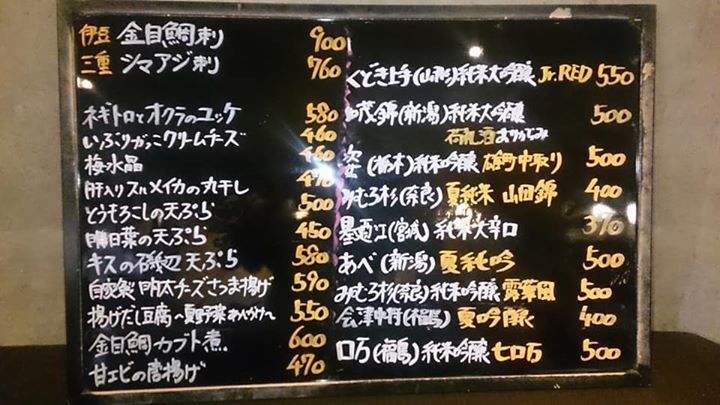 伊豆 金目鯛刺 900
三重 シマアジ刺 760
ネギトロとオクラのユッケ 580
いぶりがっこクリームチーズ 460
梅水晶 460
肝入りスルメイカの丸干し 490
とうもろこしの天ぷら 500
明日葉の天ぷら 450
キスの磯辺天ぷら 580
自家製 明太チーズさつま揚げ 590
揚げだし豆腐〜夏野菜あんかけ〜 550
金目鯛カブト煮 600
甘エビの唐揚げ 470
くどき上手(山形)純米大吟醸 Jr.RED 550
加茂錦(新潟)純米大吟醸 500
荷札酒
(栃木)純米吟醸 雄町中取り 500
みむろ杉(奈良)夏純米 山田錦 400
墨廼江(宮城)純米大辛口 370
あべ(新潟)夏純吟 500
みむろ杉(奈良)純米吟醸 露葉風 500
会津中将(福島)夏吟醸 400
ロ万(福島)純米吟醸 七ロ万 500